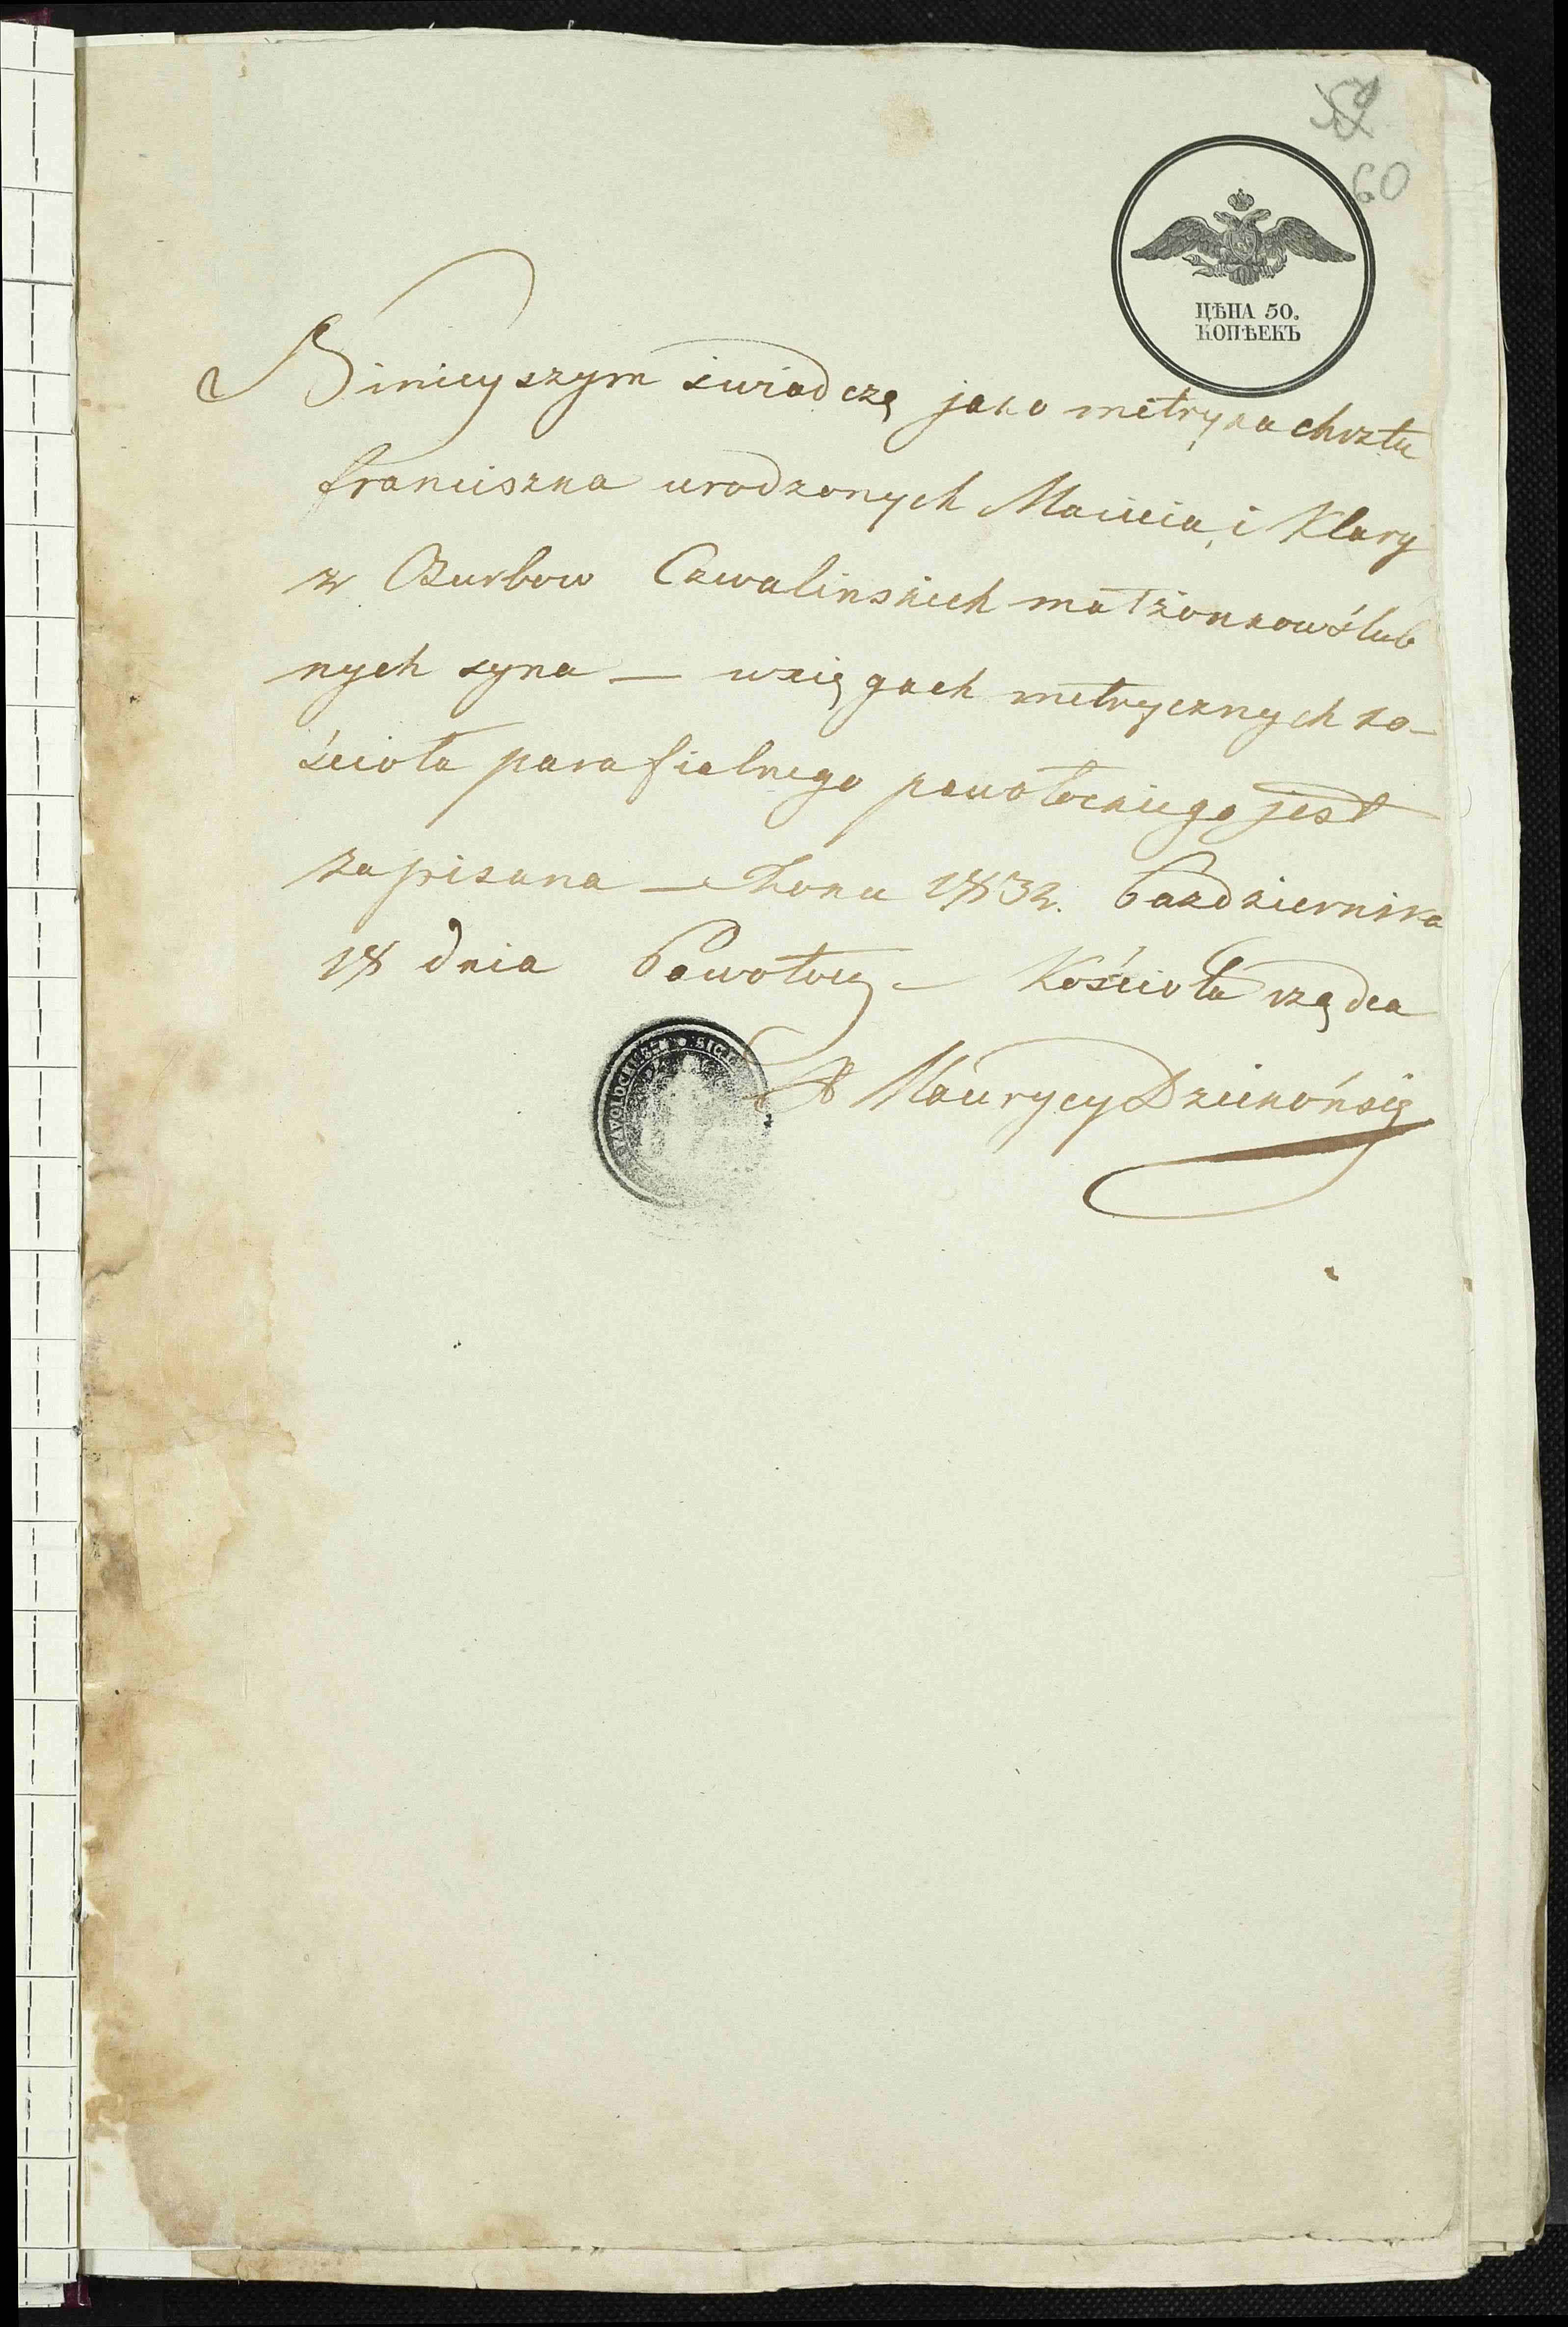 60
ЦѢНА 50.
КОПѢЕКЪ
Ninieyszym świadczę jako metryka chrztu
franciszka urodzonych Macieia i Klary
z Burbow Cwalinskich małżonkow ślub
nych syna — wxięgach metrycznych ko-
ścioła parafialnego pawołockiego jest
zapisana — Roku 1832. Pazdziernika
18 dnia Pawołocz — Kościoła rządca
X Maurycy Dziekóński